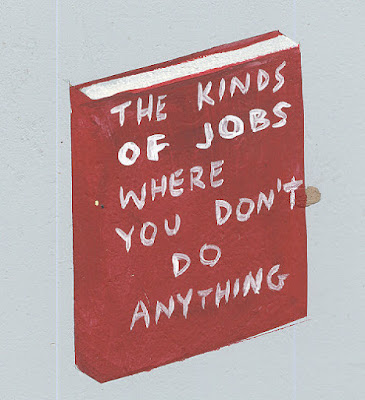 THE KINDS
OF JOBS
WHERE
YOU DON'T
DO
ANYTHING